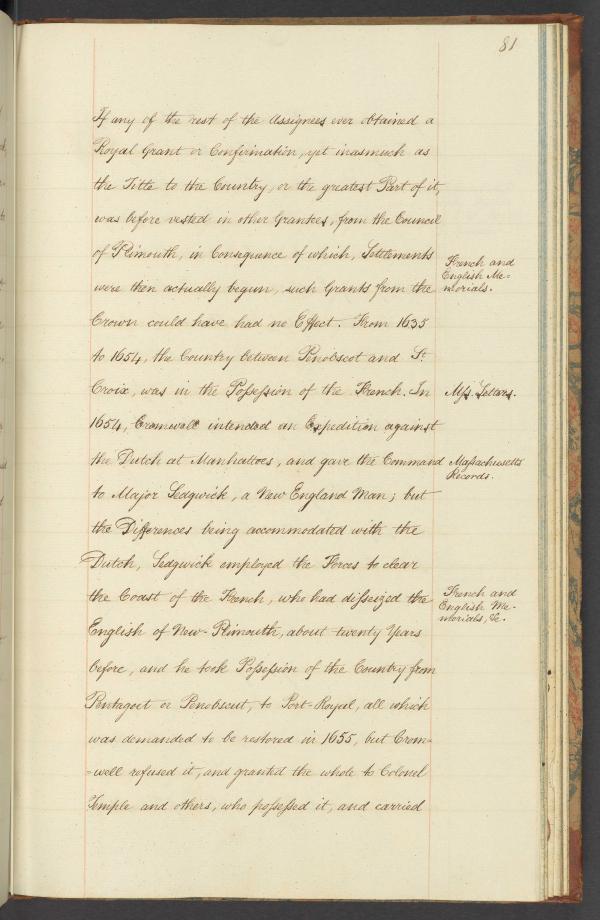 81
If any of the rest of the Assignees ever obtained a
Royal Grant or Confirmation, yet inasmuch as
the Title to the Country, or the greatest Part of it,
was before vested in other Grantees, from the Council
of Plimouth, in Consequence of which, Settlements
were then actually begun, such Grants from the
Crown could have had no Effect. From 1635
to 1654, the Country between Penobscot and St.
Croix, was in the Possession of the French. In
1654, Cromwell intended an Expedition against
the Dutch at Manhattoes, and gave the Command
to Major Sedgwick, a New England Man; but
the Differences being accommodated with the
Dutch, Sedgwick employed the Forces to clear
the Coast of the French, who had disseized the
English of New-Plimouth, about twenty Years
before, and he took Possession of the Country from
Pentagoet or Penobscut, to Port-Royal, all which
was demanded to be restored in 1655, but Crom=
=well refused it, and granted the whole to Colonel
Temple and others, who possessed it, and carried
French and
English Me-
morials.
Mss. Letters.
Massachusetts
Records.
French and
English Me-
morials, &c.